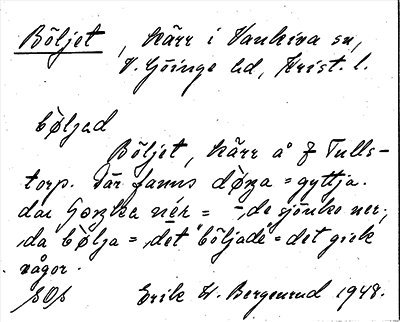 Böljet, kärr i Vankiva sn,
V. Göinge hd, Krist. l.
bøljad
Böljet, kärr å Tulls-
torp. Där fanns døna = gyttja.
dai sjonka nér = "de sjönko ner",
da bølja = det "böljade" = det gick
vågor.
SOS Erik W. Bergenrud 1948.